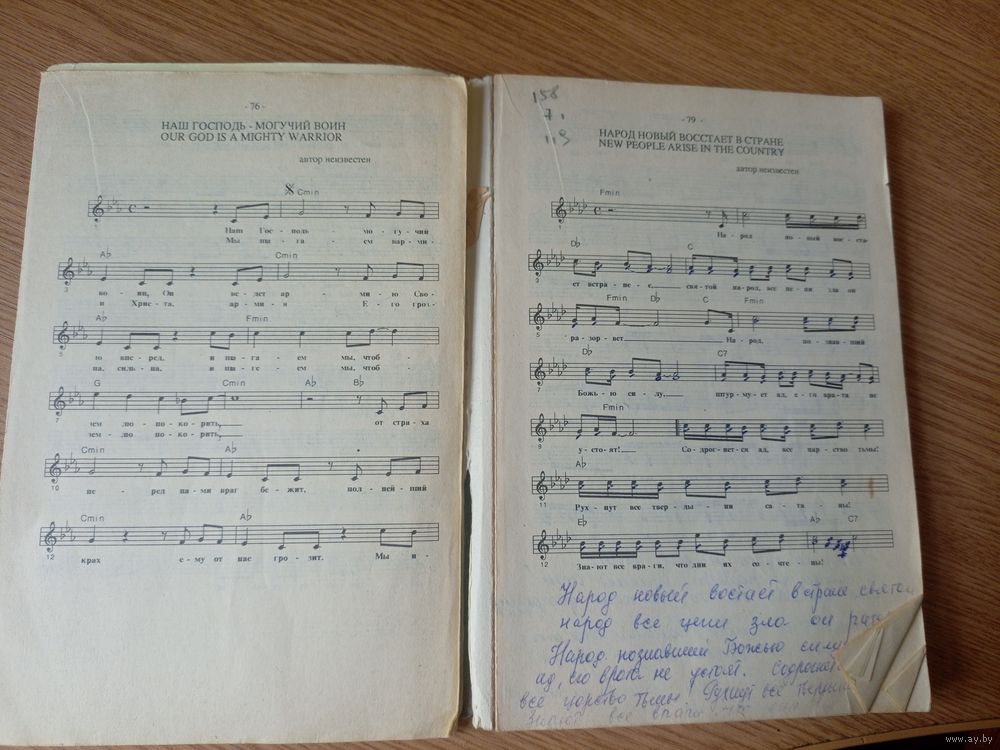 - 76 -
НАШ ГОСПОДЬ - МОГУЧИЙ ВОИН
OUR GOD IS A MIGHTY WARRIOR
автор неизвестен
Cmin
Наш Гос - подь - мо - гу - чий
Мы ша - га - ем
Ab Cmin
3
во - ин, Он ве - дет ар - мию Сво -
и Хрис - та. ар - ми я Е - го гроз -
Ab Fmin
5
ю впе - ред. и ша - га - ем мы, чтоб -
на, силь - на. мы, чтоб -
G Cmin Ab Bb
7
зем лю по - ко - рить, от стра - ха
зем - лю по - ко - рить,
Cmin Ab
10
пе - ред на - ми враг бе - жит, пол - ней - ший
Cmin Ab
12
крах е - му от нас гро - зит. Мы и -
158
- 79 -
НАРОД НОВЫЙ ВОССТАЕТ В СТРАНЕ
NEW PEOPLE ARISE IN THE COUNTRY
автор неизвестен
Fmin
1
На - род но - вый восс - та -
Db C
ет в стра - не, свя - той на - род, все це - пи зла он
Fmin Db C Fmin
5
ра - зор - вет На - род, по - знав - ший
Db C7
7
Божь - ю си - лу, штур - му - ет ад, е - го вра - та не
Fmin
9
ус - то - ят! Со - дрог - нет - ся ад, все цар - ство тьмы!
Ab
11
Рух - нут все твер - ды - ни са - та - ны!
Eb Ab C7
12
Зна - ют все вра - ги, что дни их со - чте - ны!
Народ новый востает в стране святой
народ все цепи зла он
Народ познавший Божью
ад, его врата не устоят.
все царство тьмы! все
все враги что
www.ay.by